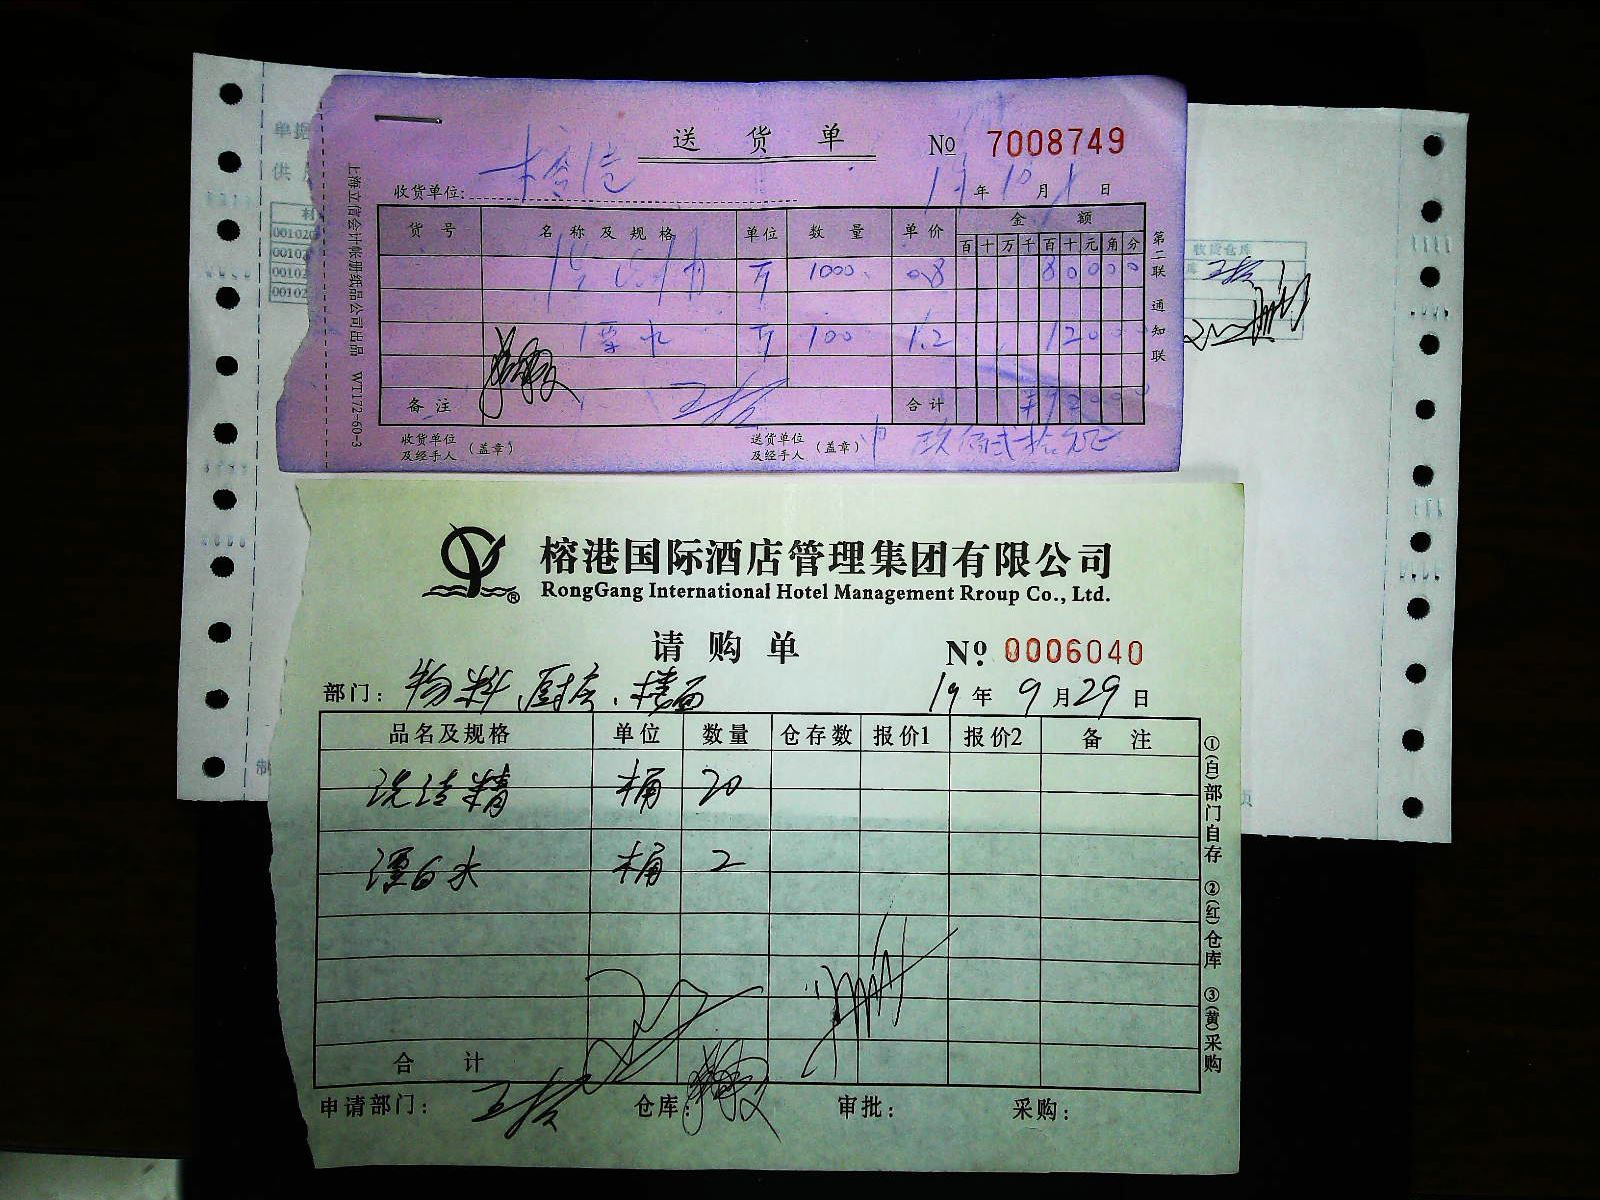 送货单
No 7008749
收货单位: 榕港
19年10月1日
货号 名称及规格 单位 数量 单价 金额
百十万千百十元角分
斤 1000 0.8 80000
漂水 斤 100 1.2 12000
备注 合计 ¥92000
收货单位及经手人(盖章)
送货单位及经手人(盖章)
玖佰贰拾元正
第二联 通知联
上海立信会计帐册纸品公司出品 WT172-60-3
单据
供
001020
00102
00102
00102
收货仓库
榕港国际酒店管理集团有限公司
RongGang International Hotel Management Rroup Co., Ltd.
请购单
No. 0006040
部门: 物料、厨房、楼面
19年9月29日
品名及规格 单位 数量 仓存数 报价1 报价2 备注
洗洁精 桶 20
漂白水 桶 2
合计
申请部门: 仓库: 审批: 采购:
①(白)部门自存 ②(红)仓库 ③(黄)采购
制
页